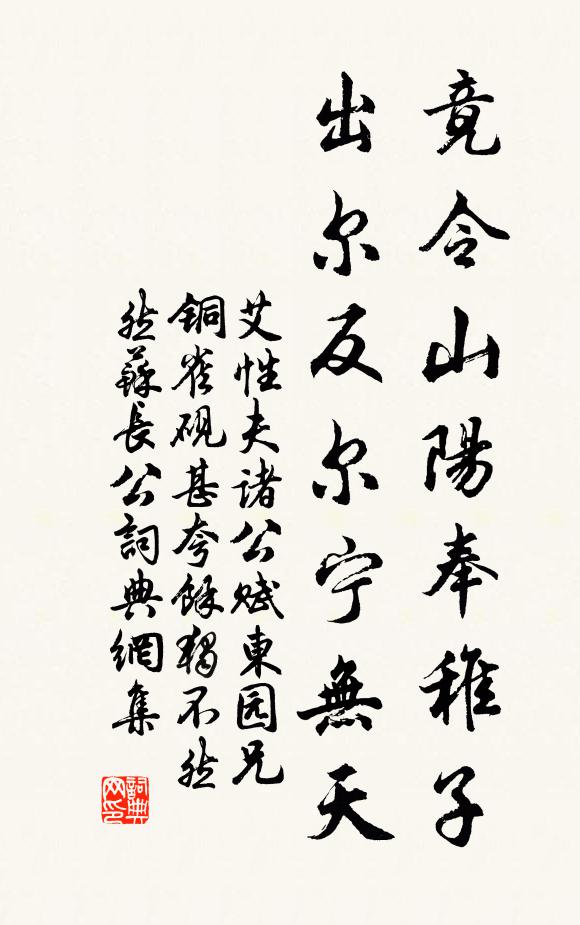 竟令山陽奉稚子
出尔反尔宁無天
艾性夫諸公赋東园兄
铜雀硯甚夸餘獨不然
然蘇長公詞典網集
詞典网印